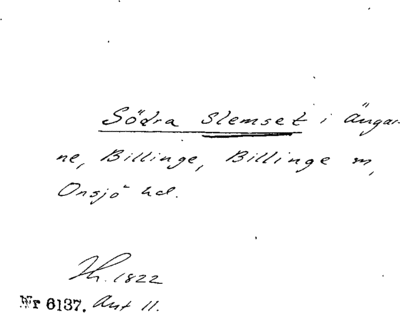 Södra Slemset i Ängar-
ne, Billinge, Billinge m,
Onsjö hd.
Jh. 1822
Nr 6137. Akt 11.